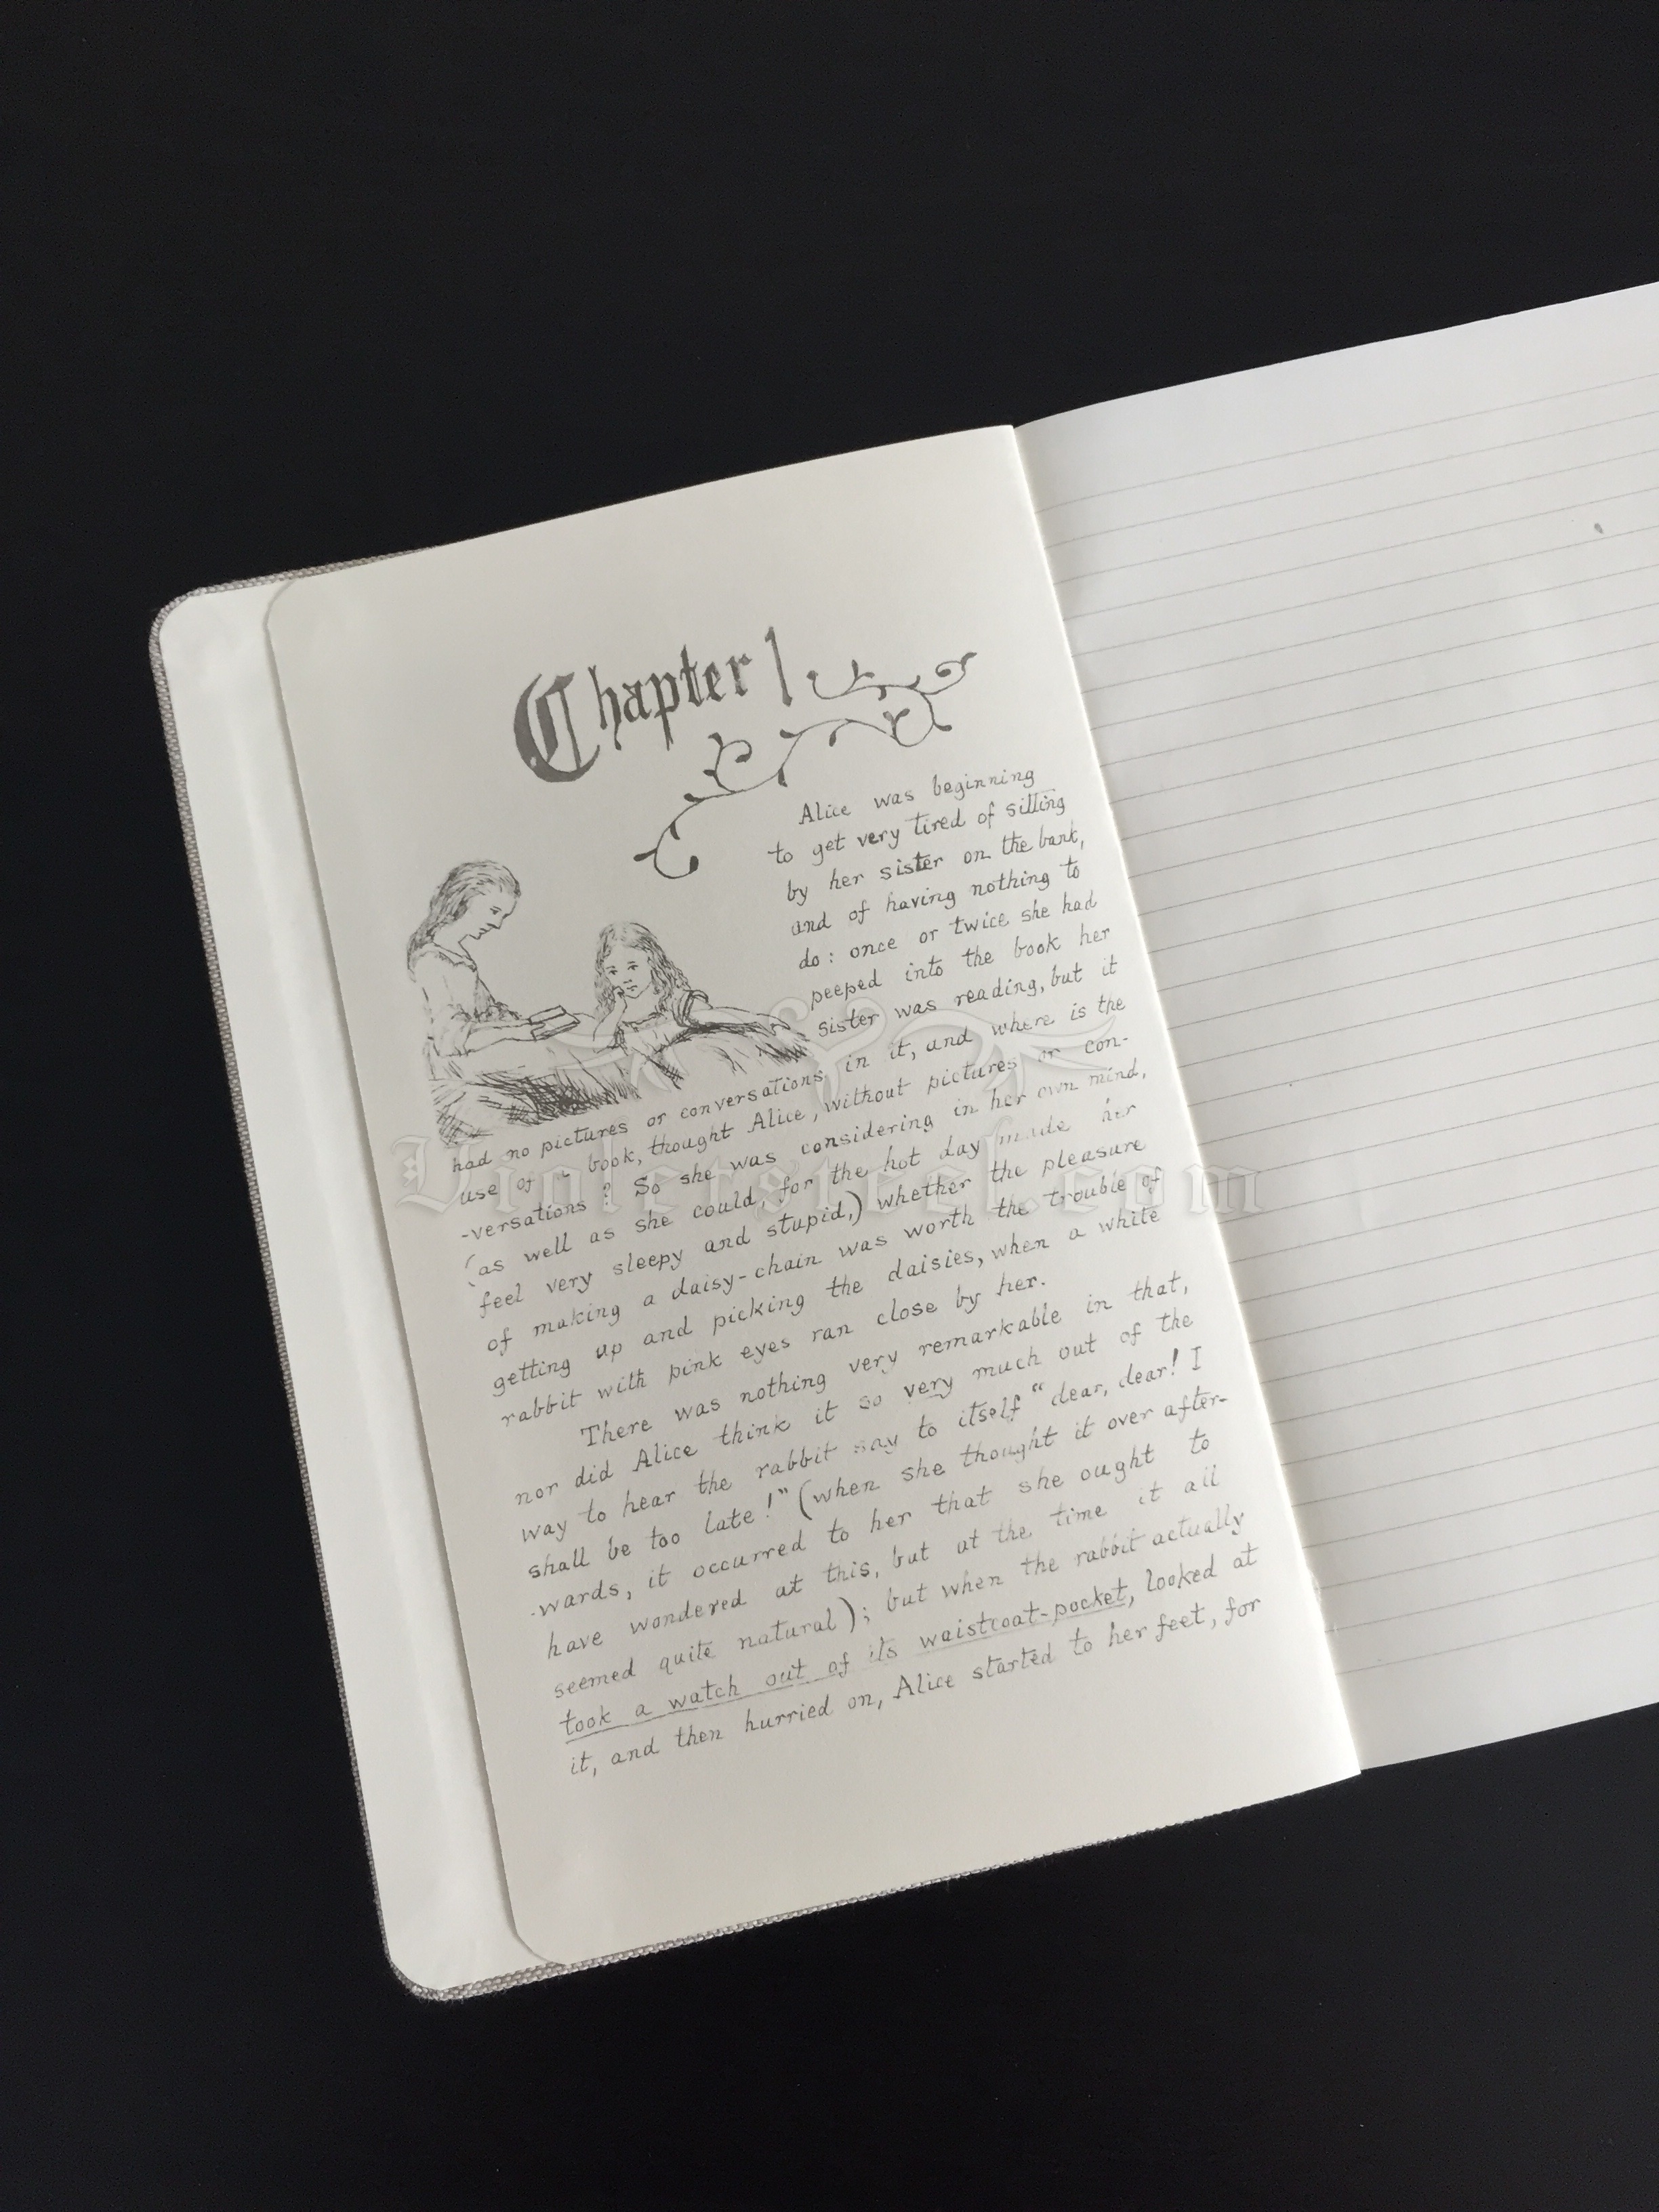 Chapter 1
Alice was beginning
to get very tired of sitting
by her sister on the bank,
and of having nothing to
do: once or twice she had
peeped into the book her
sister was reading, but it
had no pictures or conversations in it, and where is the
use of a book, thought Alice, without pictures or con-
-versations? So she was considering in her own mind,
(as well as she could, for the hot day made her
feel very sleepy and stupid,) whether the pleasure
of making a daisy-chain was worth the trouble of
getting up and picking the daisies, when a white
rabbit with pink eyes ran close by her.
There was nothing very remarkable in that,
nor did Alice think it so very much out of the
way to hear the rabbit say to itself "dear, dear! I
shall be too late!" (when she thought it over after-
-wards, it occurred to her that she ought to
have wondered at this, but at the time it all
seemed quite natural); but when the rabbit actually
took a watch out of its waistcoat-pocket, looked at
it, and then hurried on, Alice started to her feet, for
Violetsteel.com